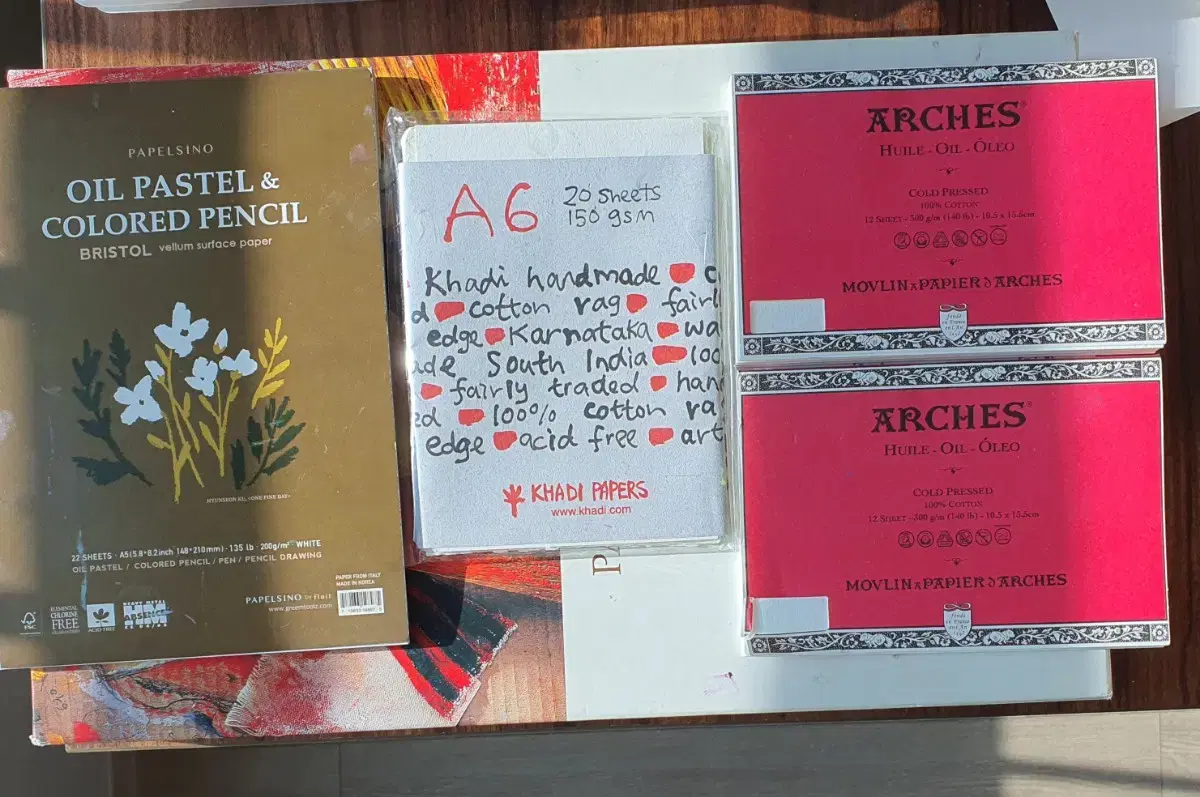 PAPELSINO
OIL PASTEL &
COLORED PENCIL
BRISTOL vellum surface paper
HYUNSEON KU, <ONE FINE DAY>
22 SHEETS · A5(5.8*8.2inch 148*210mm) · 135 lb · 200g/m² WHITE
OIL PASTEL / COLORED PENCIL / PEN / PENCIL DRAWING
FSC
ELEMENTAL
CHLORINE
FREE
GUARANTEED
ACID FREE
HEAVY METAL
ABSENCE
PAPELSINO by fleit
www.greentoolz.com
PAPER FROM ITALY
MADE IN KOREA
A6
20 sheets
150 gsm
Khadi handmade c
d cotton rag fairl
edge Karnataka wa
ade South India 100
fairly traded han
ed 100% cotton ra
edge acid free art
KHADI PAPERS
www.khadi.com
ARCHES®
HUILE - OIL - ÓLEO
COLD PRESSED
100% COTTON
12 SHEET - 300 g/m (140 lb) - 10.5 x 15.5cm
MOVLIN A PAPIER D ARCHES
fondé
en France
en 1492
ARCHES®
HUILE - OIL - ÓLEO
COLD PRESSED
100% COTTON
12 SHEET - 300 g/m (140 lb) - 10.5 x 15.5cm
MOVLIN A PAPIER D ARCHES